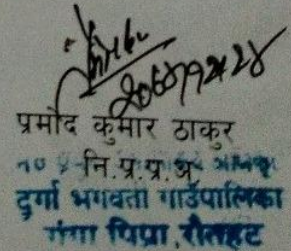 २०७४।१२।२४
प्रमोद कुमार ठाकुर
नि.प्र.प्र.अ
दुर्गा भगवती गाउँपालिका
गंगा पिप्रा, रौतहट